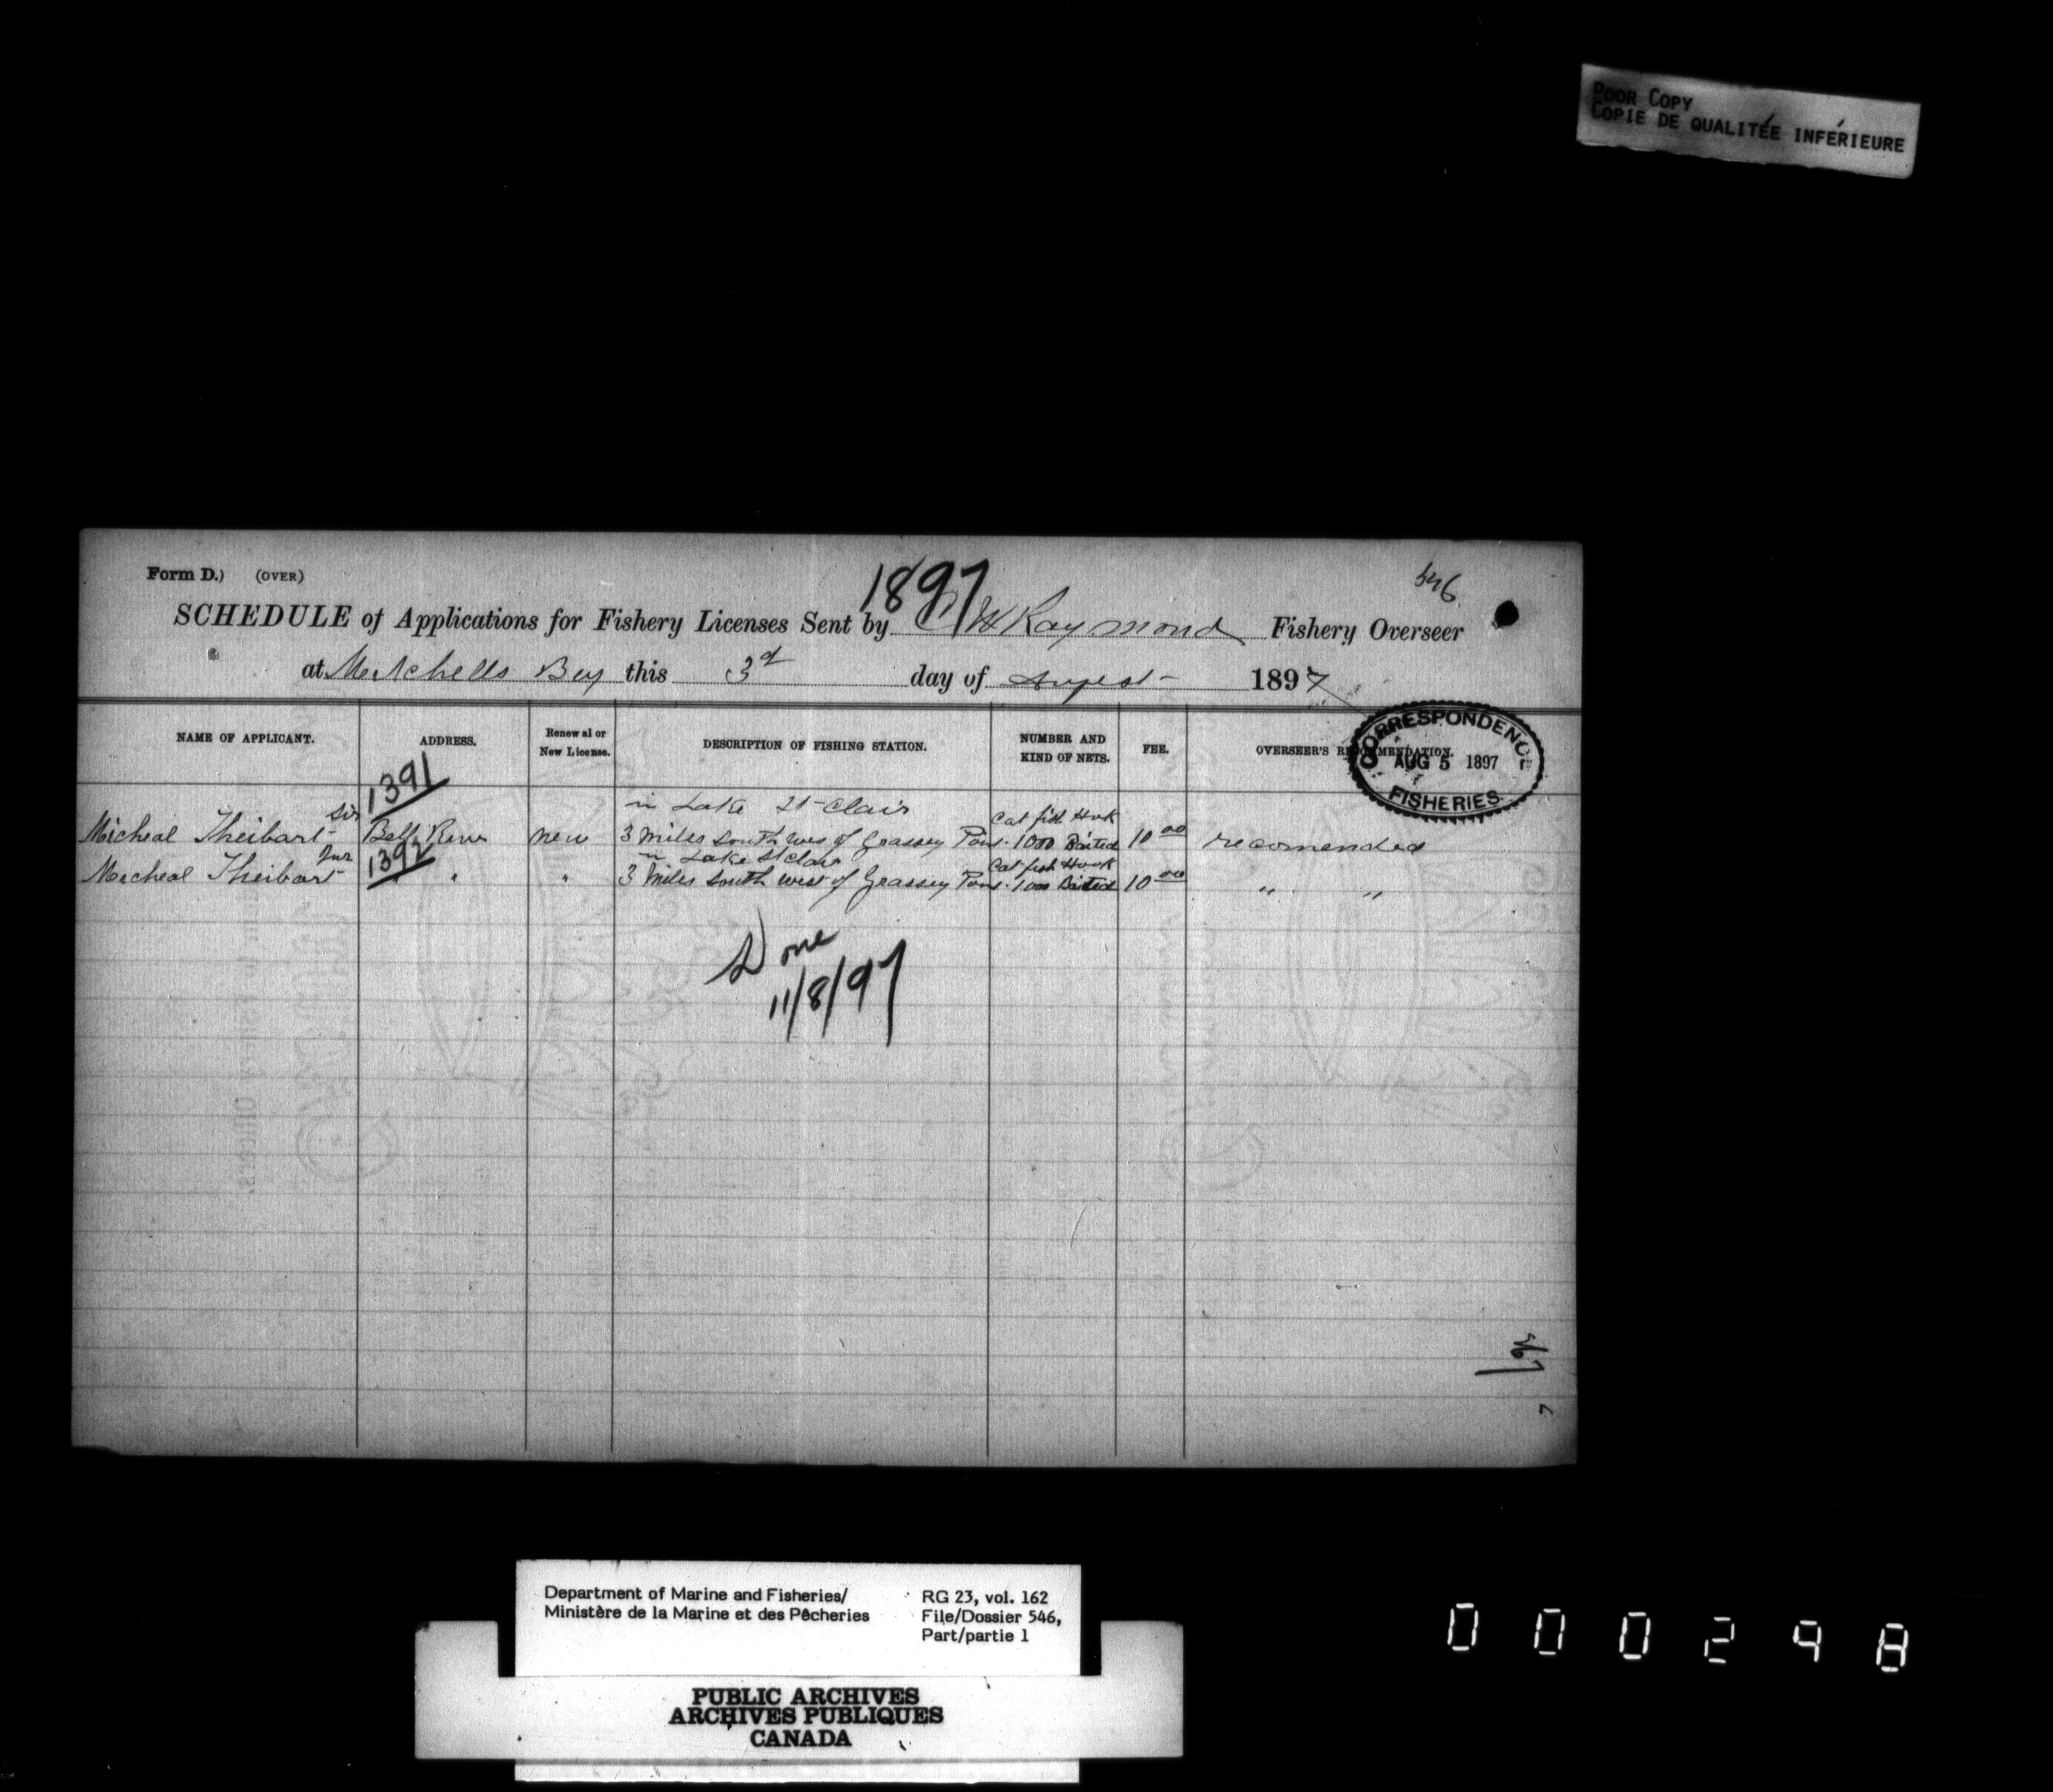 POOR COPY
COPIE DE QUALITÉE INFÉRIEURE
Form D.) (OVER)
1897
546
SCHEDULE of Applications for Fishery Licenses Sent by C W Raymond Fishery Overseer
at Mitchells Bey this 3d day of August 1897
NAME OF APPLICANT. ADDRESS. Renewal or New License. DESCRIPTION OF FISHING STATION. NUMBER AND KIND OF NETS. FEE. OVERSEER'S RECOMMENDATION.
CORRESPONDENCE
AUG 5 1897
FISHERIES
1391
in Lake St-Clair Cat fish Hook
Micheal Theibart Sir Bell River new 3 miles south wes of Grassey 1000 Baited 10 00 recomended
1392 in Lake St Clair Cat fish Hook
Micheal Theibart Jnr " " " 3 miles south west of Grassey 1000 Baited 10 00 " "
Done
11/8/97
Department of Marine and Fisheries/
Ministère de la Marine et des Pêcheries
RG 23, vol. 162
File/Dossier 546,
Part/partie 1
PUBLIC ARCHIVES
ARCHIVES PUBLIQUES
CANADA
000298